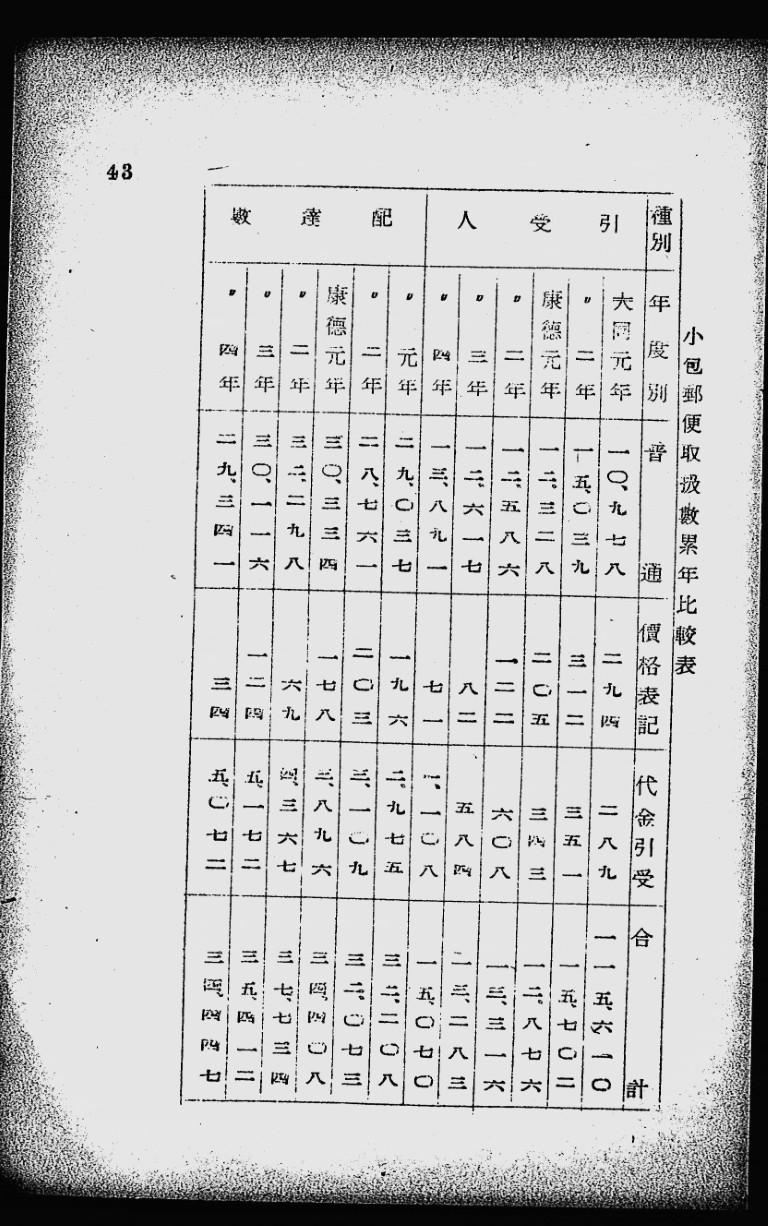 43
小包郵便取扱數累年比較表
種別 年度別 普通 價格表記 代金引受 合計
引受人
大同元年 一〇、九七八 二九四 二八九 一一五、六一〇
〃二年 一五、〇三九 三一二 三五一 一五、七〇二
康德元年 一二、三二八 二〇五 三四三 一二、八七六
〃二年 一二、五八六 一二二 六〇八 一三、三一六
〃三年 一二、六一七 八二 五八四 一三、二八三
〃四年 一三、八九一 七一 一、一〇八 一五、〇七〇
配達數
〃元年 二九、〇三七 一九六 二、九七五 三二、二〇八
〃二年 二八、七六一 二〇三 三、一〇九 三二、〇七三
康德元年 三〇、三三四 一七八 三、八九六 三四、四〇八
〃二年 三二、二九八 六九 四、三六七 三七、七三四
〃三年 三〇、一一六 一二四 五、一七二 三五、四一二
〃四年 二九、三四一 三四 五、〇七二 三四、四四七